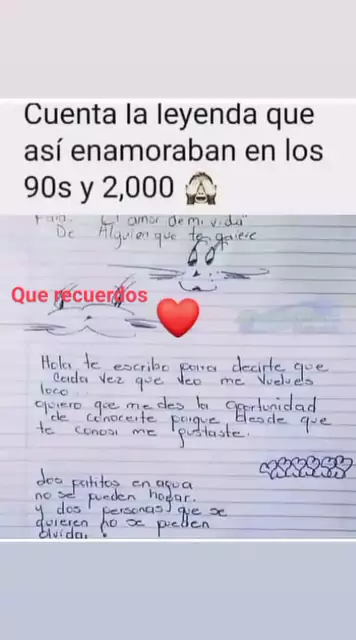 Cuenta la leyenda que
así enamoraban en los
90s y 2,000 🙈
Para: El amor de mi vida"
De Alguien que te quiere
Que recuerdos
Hola te escribo para decirte que
cada vez que veo me vuelves
loco...
quiero que me des la oportunidad
de conocerte porque desde que
te conosi me gustaste.
dos patitos en agua
no se pueden hogar.
y dos personas que se
quieren no se pueden
olvidar.